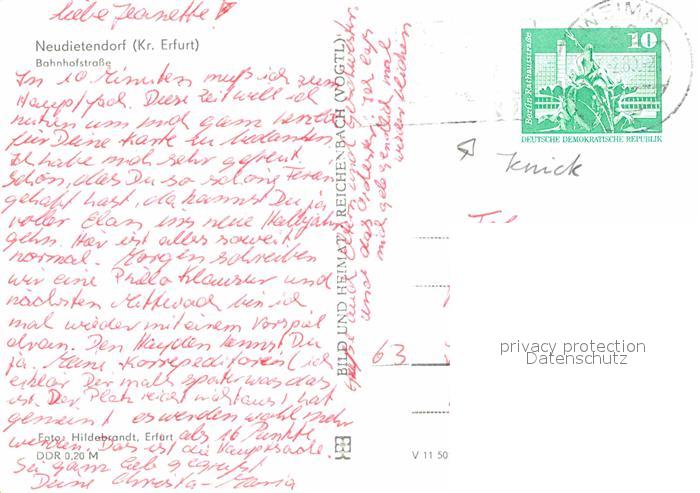 Liebe Jeanette!
Neudietendorf (Kr. Erfurt)
Bahnhofstraße
In 10 Minuten muß ich zum
Hauptfach. Diese Zeit will ich
nutzen um mich ganz
für Deine Karte zu bedanken.
Ich habe mich sehr gefreut.
Schön, das Du so schöne Ferien
gehabt hast, da kannst Du ja
voller Elan ins neue Halbjahr
gehn. Hier ist alles soweit
normal. Morgen schreiben
wir eine Philo Klausur und
nächsten Mittwoch bin ich
mal wieder mit einem Vorspiel
dran. Den Haydn kennst Du
ja. Meine Korrepetitorein (ich
erklär Dir mal später was das
ist. Der Platz reicht nicht aus), hat
gemeint es werden wohl mehr
werden als 16 Punkte.
Das ist die Hauptsache.
Sei ganz lieb gegrüßt
Deine Christa-Maria
Foto: Hildebrandt, Erfurt
DDR 0,20 M
BILD UND HEIMAT REICHENBACH (VOGTL)
Grüße auch Deine
und das Orchester.
mich gelegentlich mal
wieder blicken
V 11 50
WEIMAR
10
Berlin, Rathausstraße
DEUTSCHE DEMOKRATISCHE REPUBLIK
Knick
63
privacy protection
Datenschutz